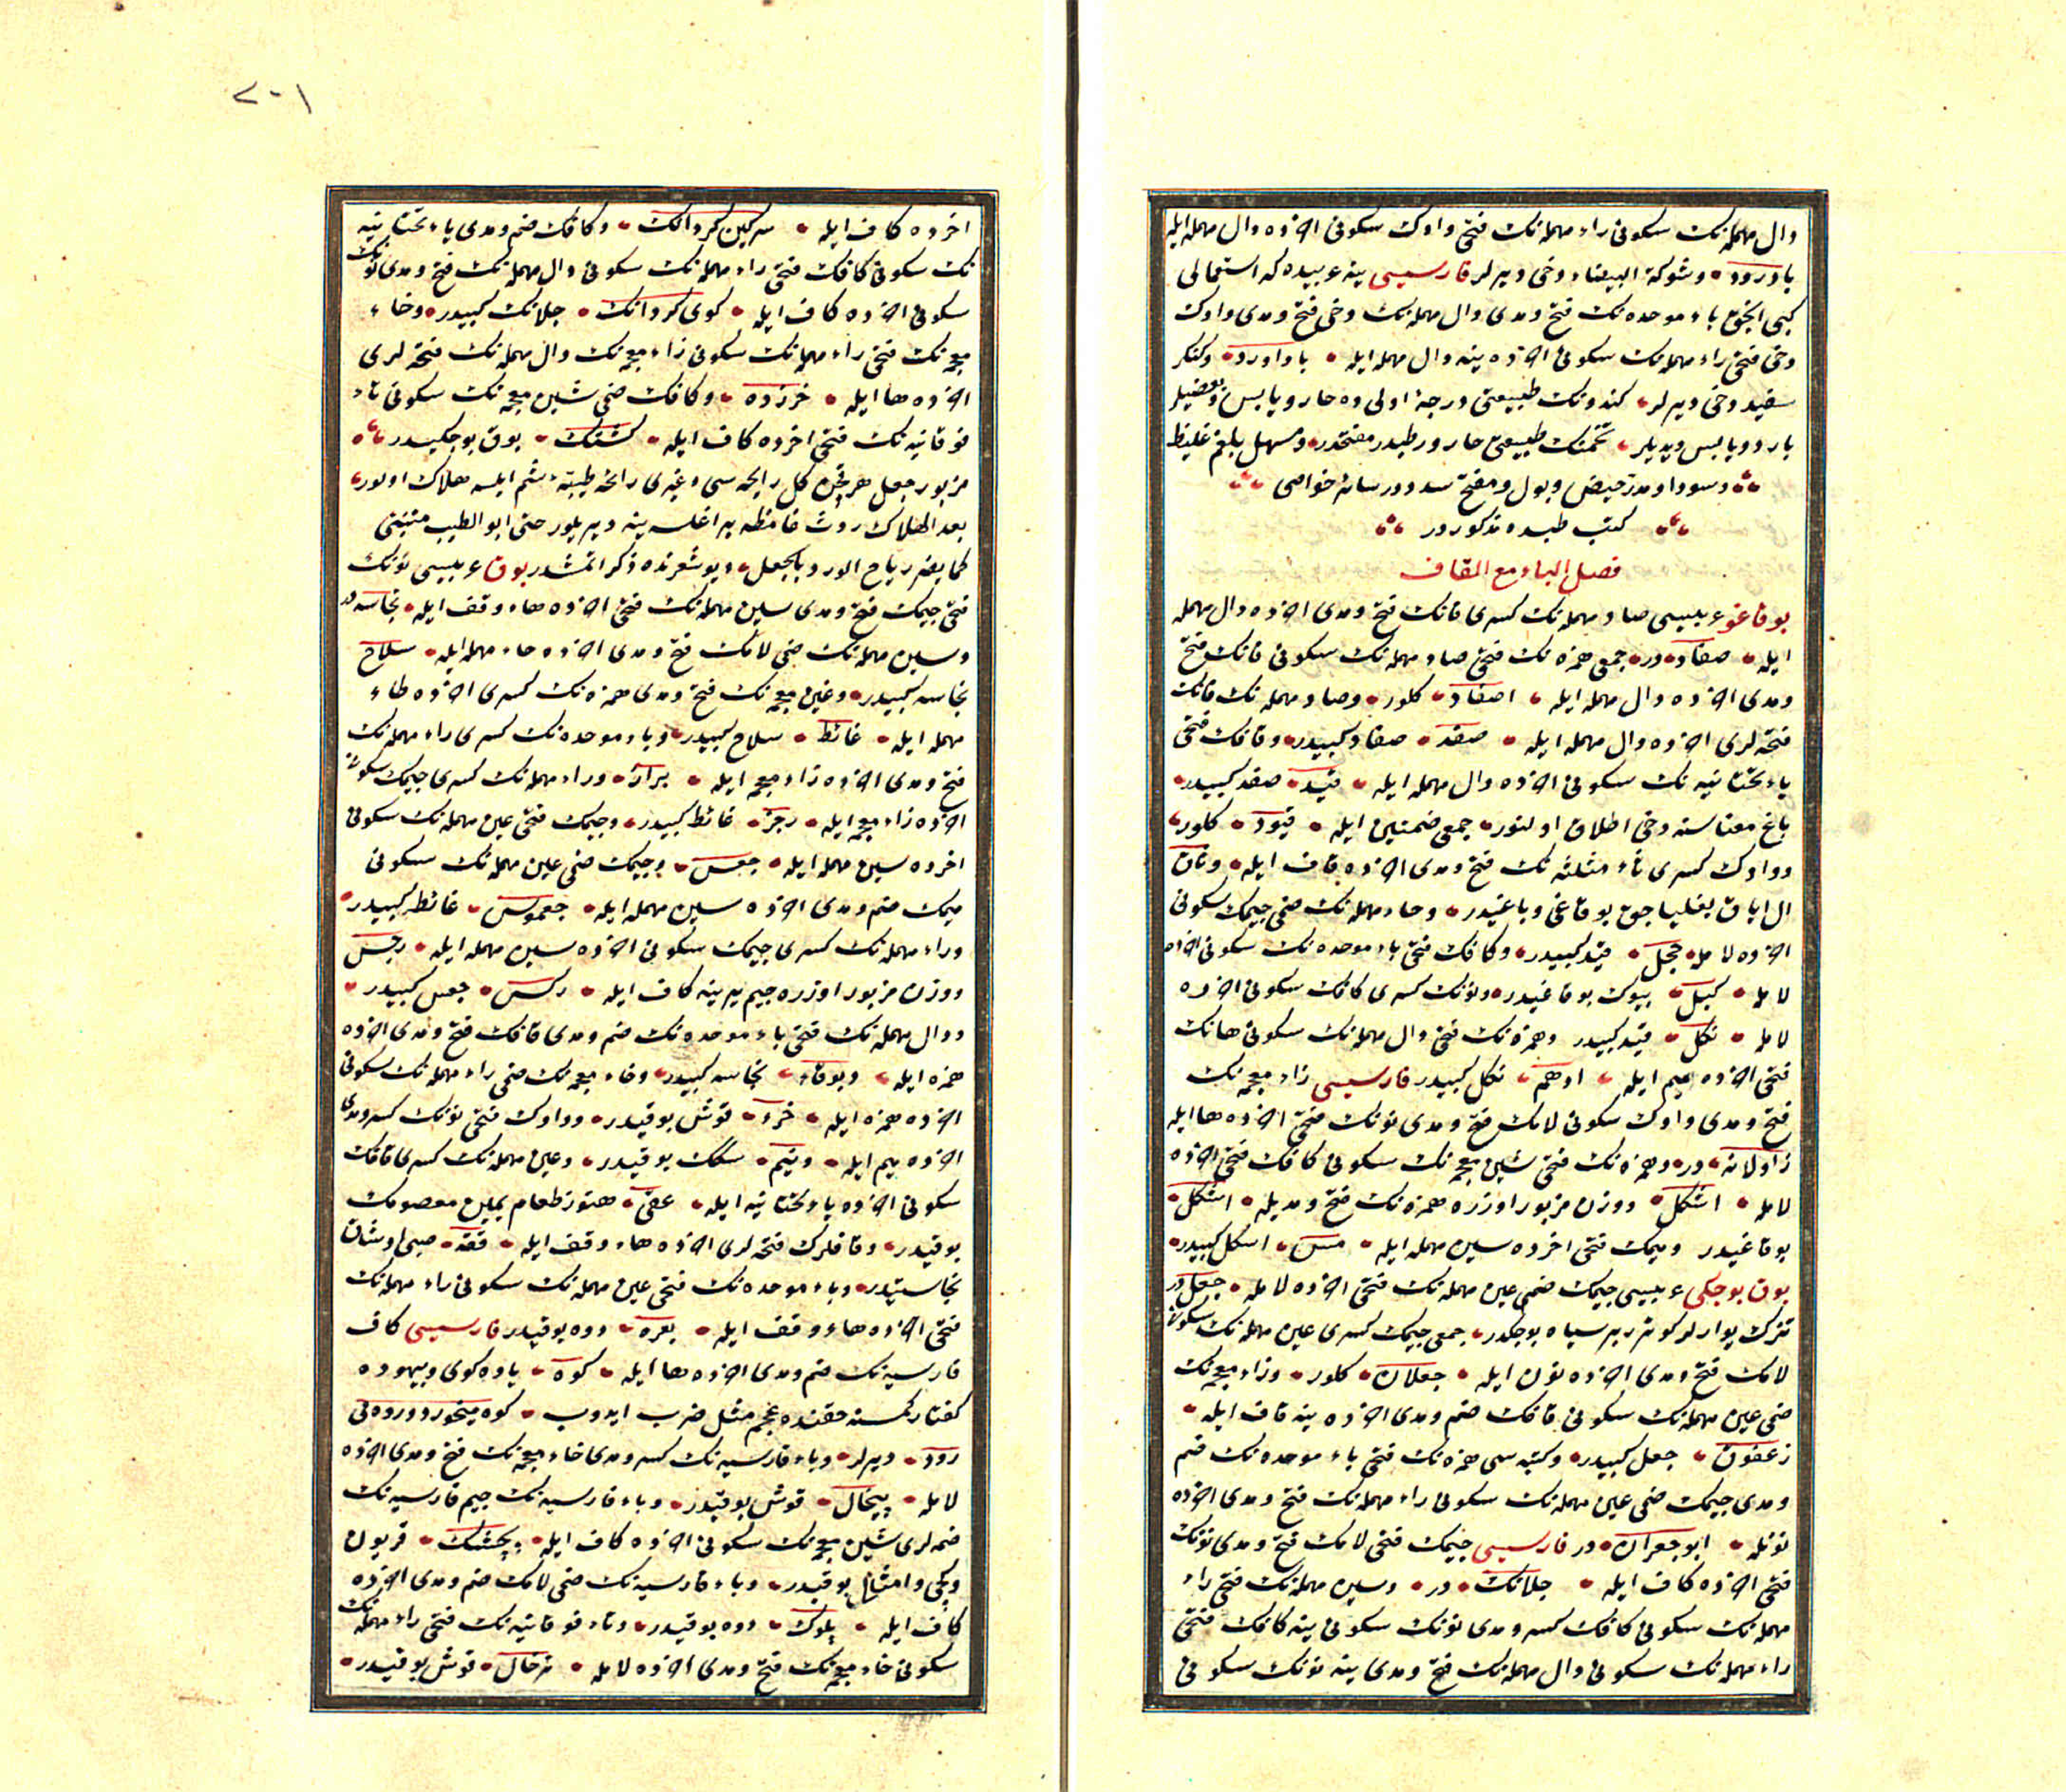 دال مهمله‌نك سكونی راء مهمله‌نك فتحی واوك سكونی اخرده دال مهمله ایله
بادرود وشوكة البیضاء دخی دیرلر فارسیسی ینه عربیده كه استعمالی
كبی انجق باء موحده‌نك فتح و مدی دال مهمله‌نك دخی فتح و مدی واوك
دخی فتحی راء مهمله‌نك سكونی اخرده ینه دال مهمله ایله باداورد وكنكر
سفید دخی دیرلر كندونك طبیعتی درجهٔ اولی ده حار و یابس وبعضیلر
بارد و یابس دیدیلر تخمنك طبیعتی حار و رطبدر مفتحدر ومسهل بلغم غلیظ
و سودا و مدر حیض و بول و مفتح سددر سائر خواصی
كتب طبده مذكوردر
فصل الباء مع القاف
بوقاغو عربیسی صاد مهمله‌نك كسری فانك فتح و مدی اخرده دال مهمله
ایله صفاد در جمعی همزه‌نك فتحی صاد مهمله‌نك سكونی فانك فتح
و مدی اخرده دال مهمله ایله اصفاد كلور وصاد مهمله‌نك فانك
فتحه‌لری اخرده دال مهمله ایله صفد صفاد كبیدر وقافك فتحی
یاء تحتانیه‌نك سكونی اخرده دال مهمله ایله قید صفد كبیدر
باغ معناسنه دخی اطلاق اولنور جمعی ضمتین ایله قیود كلور
و واوك كسری ثاء مثلثه‌نك فتح و مدی اخرده قاف ایله وثاق
ال ایاق بغلیاجق بوقاغی و باغیدر وحاء مهمله‌نك ضمی جیمك سكونی
اخرده لامله حجل قید كبیدر وكافك فتحی باء موحده‌نك سكونی اخرده
لامله كبل بیوك بوقاغیدر ونونك كسری كافك سكونی اخرده
لامله نكل قید كبیدر وهمزه‌نك فتحی دال مهمله‌نك سكونی هانك
فتحی اخرده میم ایله ادهم نكل كبیدر فارسیسی زاء معجمه‌نك
فتح و مدی واوك سكونی لامك فتح و مدی نونك فتحی اخرده ها ایله
زاولانه در وهمزه‌نك فتحی شین معجمه‌نك سكونی كافك فتحی اخرده
لامله اشكل ووزن مزبور اوزره همزه‌نك فتح و مدیله اشكل
بوقاغیدر ومیمك فتحی اخرده سین مهمله ایله مس اشكل كبیدر
بوق بوجكی عربیسی جیمك ضمی عین مهمله‌نك فتحی اخرده لامله جعل در
ترك یوارلر كوتورر بر سیاه بوجكدر جمعی جیمك كسری عین مهمله‌نك سكونی
لامك فتح و مدی اخرده نون ایله جعلان كلور وزاء معجمه‌نك
ضمی عین مهمله‌نك سكونی قافك ضم و مدی اخرده ینه قاف ایله
زعقوق جعل كبیدر وكنیه‌سی همزه‌نك فتحی باء موحده‌نك ضم
و مدی جیمك ضمی عین مهمله‌نك سكونی راء مهمله‌نك فتح و مدی اخرده
نونله ابو جعران در فارسیسی جیمك فتحی لامك فتح و مدی نونك
فتحی اخرده كاف ایله جلانك در وسین مهمله‌نك فتحی راء
مهمله‌نك سكونی كافك كسر و مدی نونك سكونی ینه كافك فتحی
راء مهمله‌نك سكونی دال مهمله‌نك فتح و مدی ینه نونك سكونی
٢٠١
اخرده كاف ایله سركین كردانك وكافك ضم و مدی یاء تحتانیه
نك سكونی كافك فتحی راء مهمله‌نك سكونی دال مهمله‌نك فتح و مدی نونك
سكونی اخرده كاف ایله كوی كردانك جلانك كبیدر وخاء
معجمه‌نك فتحی راء مهمله‌نك سكونی زاء معجمه‌نك دال مهمله‌نك فتحه‌لری
اخرده ها ایله خرزده وكافك ضمی شین معجمه‌نك سكونی تاء
فوقانیه‌نك فتحی اخرده كاف ایله كشتك بوق بوجكیدر
مزبور جعل هر نچن كل رایحه‌سی وغیری رائحهٔ طیبه شم ایلسه هلاك اولور
بعد الهلاك روث غائطه براغلسه ینه دیریلور حتی ابو الطیب متنبی
كما یضر ریاح الورد بالجعل دیو شعرنده ذكر اتمشدر بوق عربیسی نونك
فتحی جیمك فتح و مدی سین مهمله‌نك فتحی اخرده هاء وقف ایله نجاسه در
وسین مهمله‌نك ضمی لامك فتح و مدی اخرده حاء مهمله ایله سلاح
نجاسه كبیدر وغین معجمه‌نك فتح و مدی همزه‌نك كسری اخرده طاء
مهمله ایله غائط سلاح كبیدر وباء موحده‌نك كسری راء مهمله‌نك
فتح و مدی اخرده زاء معجمه ایله براز وراء مهمله‌نك كسری جیمك سكونی
اخرده زاء معجمه ایله رجز غائط كبیدر وجیمك فتحی عین مهمله‌نك سكونی
اخرده سین مهمله ایله جعس وجیمك ضمی عین مهمله‌نك سكونی
میمك ضم و مدی اخرده سین مهمله ایله جعموس غائط كبیدر
وراء مهمله‌نك كسری جیمك سكونی اخرده سین مهمله ایله رجس
ووزن مزبور اوزره جیم یرینه كاف ایله ركس جعس كبیدر
و دال مهمله‌نك فتحی باء موحده‌نك ضم و مدی قافك فتح و مدی اخرده
همزه ایله دبوقاء نجاسه كبیدر وخاء معجمه‌نك ضمی راء مهمله‌نك سكونی
اخرده همزه ایله خرء قوش بوقیدر و واوك فتحی نونك كسر و مدی
اخرده میم ایله ونیم سكك بوقیدر وعین مهمله‌نك كسری قافك
سكونی اخرده یاء تحتانیه ایله عقی هنوز طعام یمین معصومك
بوقیدر وقافلرك فتحه‌لری اخرده هاء وقف ایله ققة صبی اوشاق
نجاستیدر وباء موحده‌نك فتحی عین مهمله‌نك سكونی راء مهمله‌نك
فتحی اخرده هاء وقف ایله بعره دوه بوقیدر فارسیسی كاف
فارسیه‌نك ضم و مدی اخرده ها ایله كوه یاوه كوی و بیهوده
كفتار كمسنه حقنده عجم مثل ضرب ایدوب كوه میخورد
رود دیرلر وباء فارسیه‌نك كسر و مدی خاء معجمه‌نك فتح و مدی اخرده
لامله پیخال قوش بوقیدر وباء فارسیه‌نك جیم فارسیه‌نك
ضمه‌لری شین معجمه‌نك سكونی اخرده كاف ایله پچشك قریون
وكچی وامثالی بوقیدر وباء فارسیه‌نك ضمی لامك ضم و مدی اخرده
كاف ایله پلوك دوه بوقیدر وتاء فوقانیه‌نك فتحی راء مهمله‌نك
سكونی خاء معجمه‌نك فتح و مدی اخرده لامله ترخال قوش بوقیدر